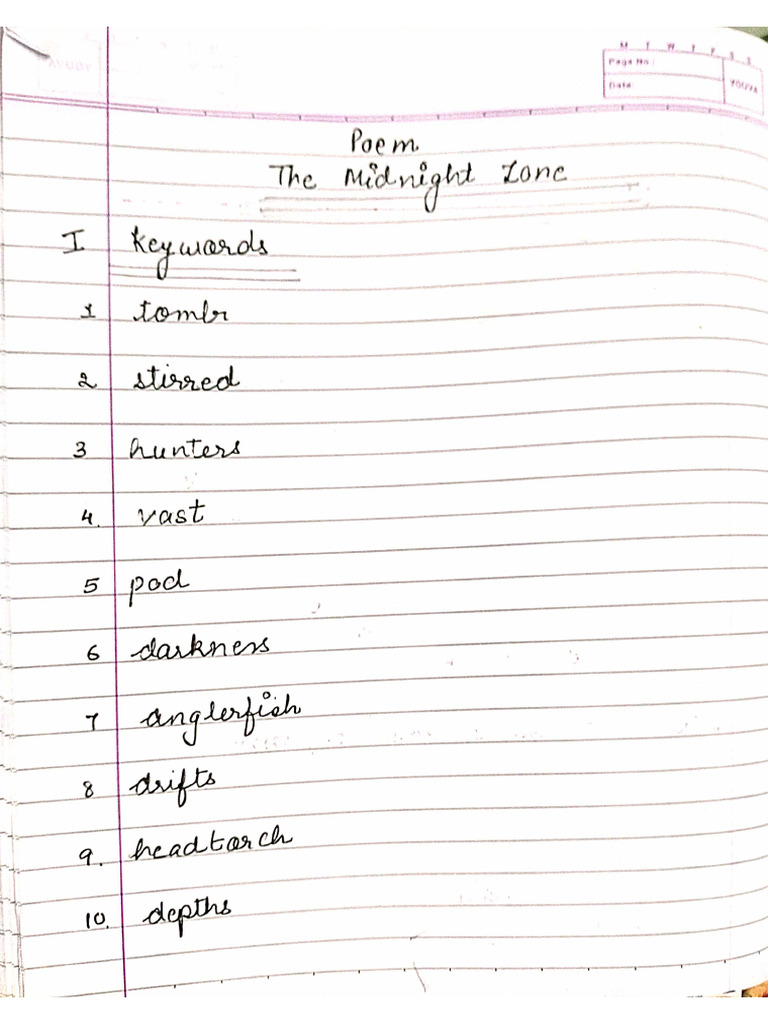 M T W T F S S
Page No.:
Date:
YOUVA
Poem
The Midnight Zone
I Keywords
1 tomb
2 stirred
3 hunters
4. vast
5 pod
6 darkness
7 anglerfish
8 drifts
9. headtorch
10. depths